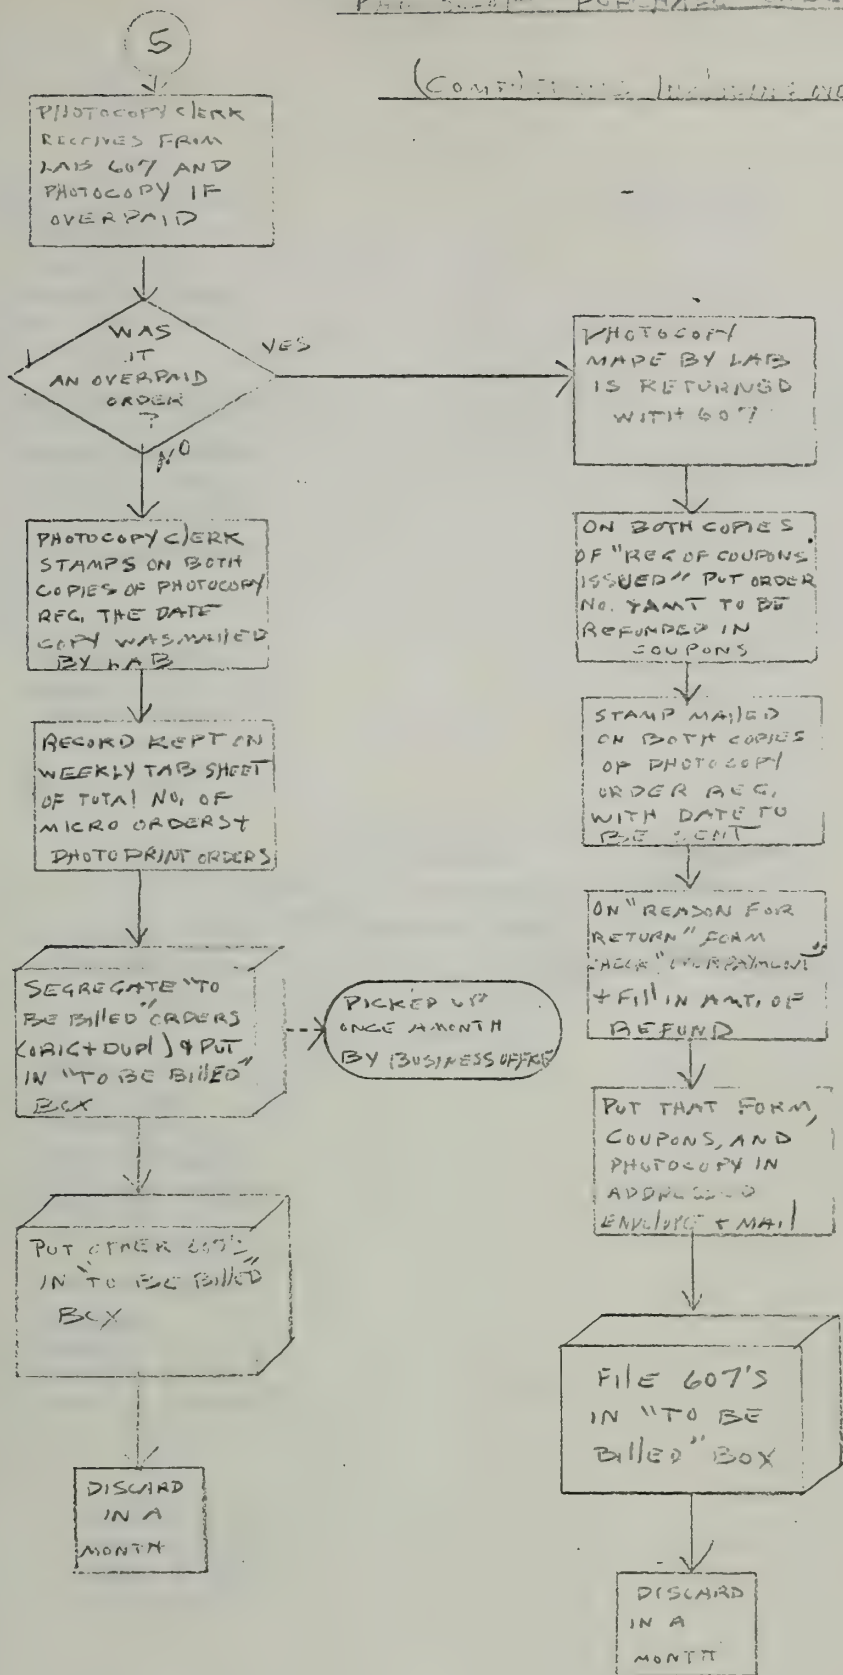 5
PHOTOCOPY CLERK
RECEIVES FROM
LAB 607 AND
PHOTOCOPY IF
OVERPAID
WAS
IT
AN OVERPAID
ORDER
?
YES
NO
PHOTOCOPY CLERK
STAMPS ON BOTH
COPIES OF PHOTOCOPY
REG. THE DATE
COPY WAS MAILED
BY LAB
RECORD KEPT ON
WEEKLY TAB SHEET
OF TOTAL NO. OF
MICRO ORDERS +
PHOTOPRINT ORDERS
SEGREGATE "TO
BE BILLED" ORDERS
(ORIG + DUPL) & PUT
IN "TO BE BILLED"
BOX
PICKED UP
ONCE A MONTH
BY BUSINESS OFFICE
PUT OTHER 607'S
IN "TO BE BILLED"
BOX
DISCARD
IN A
MONTH
PHOTOCOPY
MADE BY LAB
IS RETURNED
WITH 607
ON BOTH COPIES
OF "REG OF COUPONS
ISSUED" PUT ORDER
NO. & AMT TO BE
REFUNDED IN
COUPONS
STAMP MAILED
ON BOTH COPIES
OF PHOTOCOPY
ORDER REG.
WITH DATE TO
BE SENT
ON "REASON FOR
RETURN" FORM
CHECK "OVERPAYMENT"
+ FILL IN AMT. OF
REFUND
PUT THAT FORM,
COUPONS, AND
PHOTOCOPY IN
ADDRESSED
ENVELOPE + MAIL
FILE 607'S
IN "TO BE
BILLED" BOX
DISCARD
IN A
MONTH